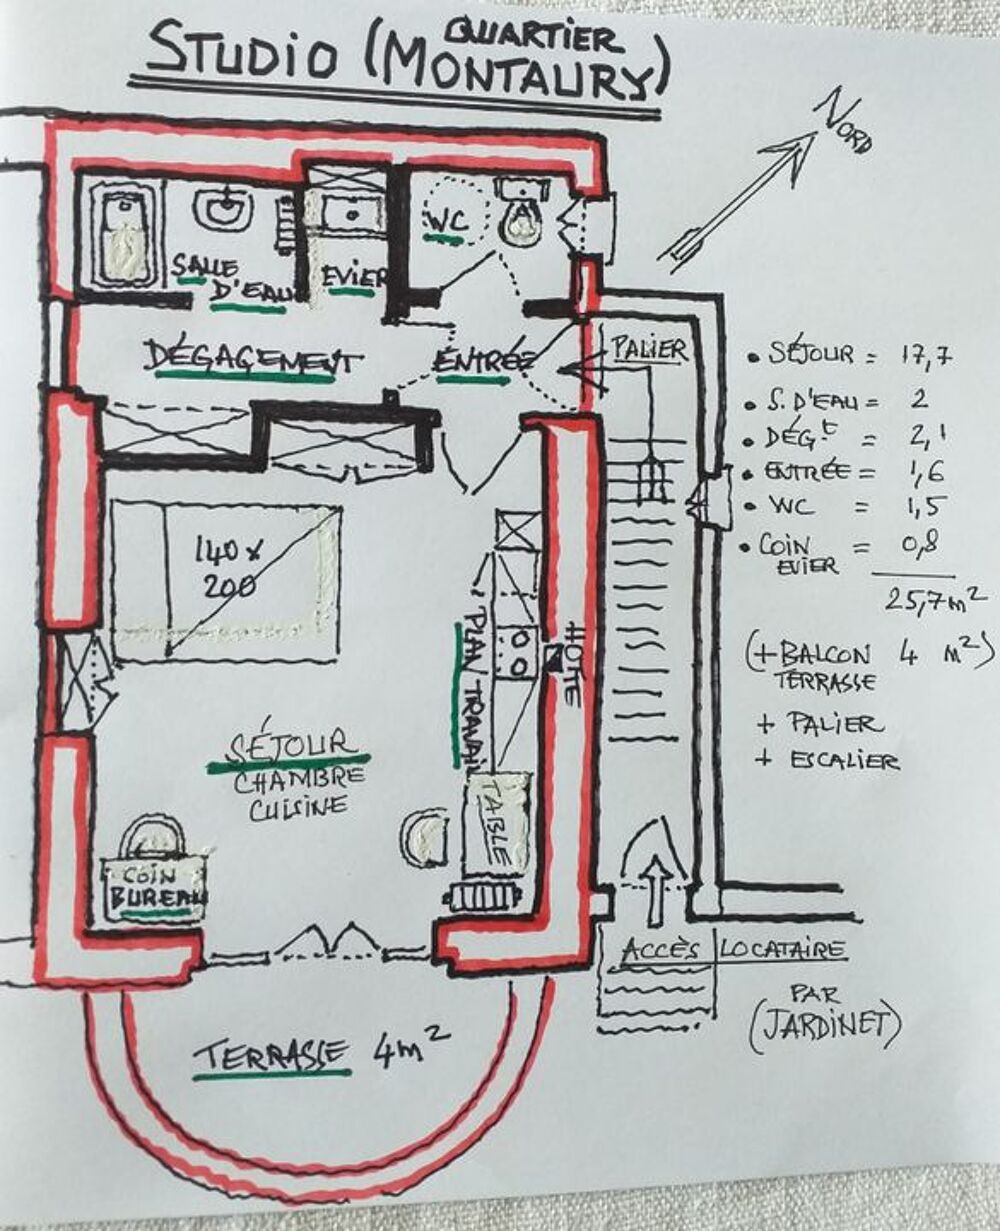 QUARTIER
STUDIO (MONTAURY)
NORD
WC
SALLE
D'EAU
EVIER
DÉGAGEMENT
ENTRÉE
PALIER
• SÉJOUR = 17,7
• S. D'EAU = 2
• DÉGT = 2,1
• ENTRÉE = 1,6
• WC = 1,5
• COIN EVIER = 0,8
25,7 m²
(+ BALCON 4 m²)
TERRASSE
+ PALIER
+ ESCALIER
140 x
200
PLAN TRAVAIL
HOTTE
SÉJOUR
CHAMBRE
CUISINE
TABLE
COIN
BUREAU
ACCÈS LOCATAIRE
PAR
(JARDINET)
TERRASSE 4m²